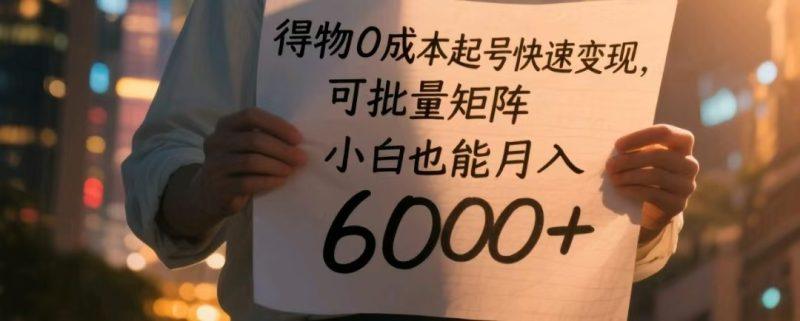 得物0成本起号快速变现，
可批量矩阵
小白也能月入
6000+